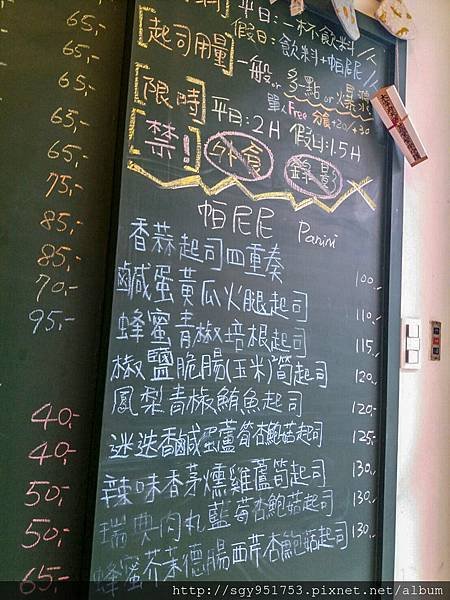 平日:一杯飲料/人
[起司用量] 假日:飲料+帕尼尼/人
一般 or 多點 or 爆漿
單人Free 分享+20/+30
[限時] 平日:2H 假日:1.5H
[禁!] 外食 錄影
帕尼尼 Panini
香蒜起司四重奏 100.-
鹹蛋黃瓜火腿起司 110.-
蜂蜜青椒培根起司 115.-
椒鹽脆腸(玉米)筍起司 120.-
鳳梨青椒鮪魚起司 120.-
迷迭香鹹蛋蘆筍杏鮑菇起司 125.-
辣味香茅燻雞蘆筍起司 130.-
瑞典肉丸藍莓杏鮑菇起司 130.-
蜂蜜芥茉德腸西芹杏鮑菇起司 130.-
65.-
65.-
65.-
65.-
65.-
75.-
85.-
85.-
70.-
95.-
40.-
40.-
50.-
50.-
65.-
http://sgy951753.pixnet.net/album